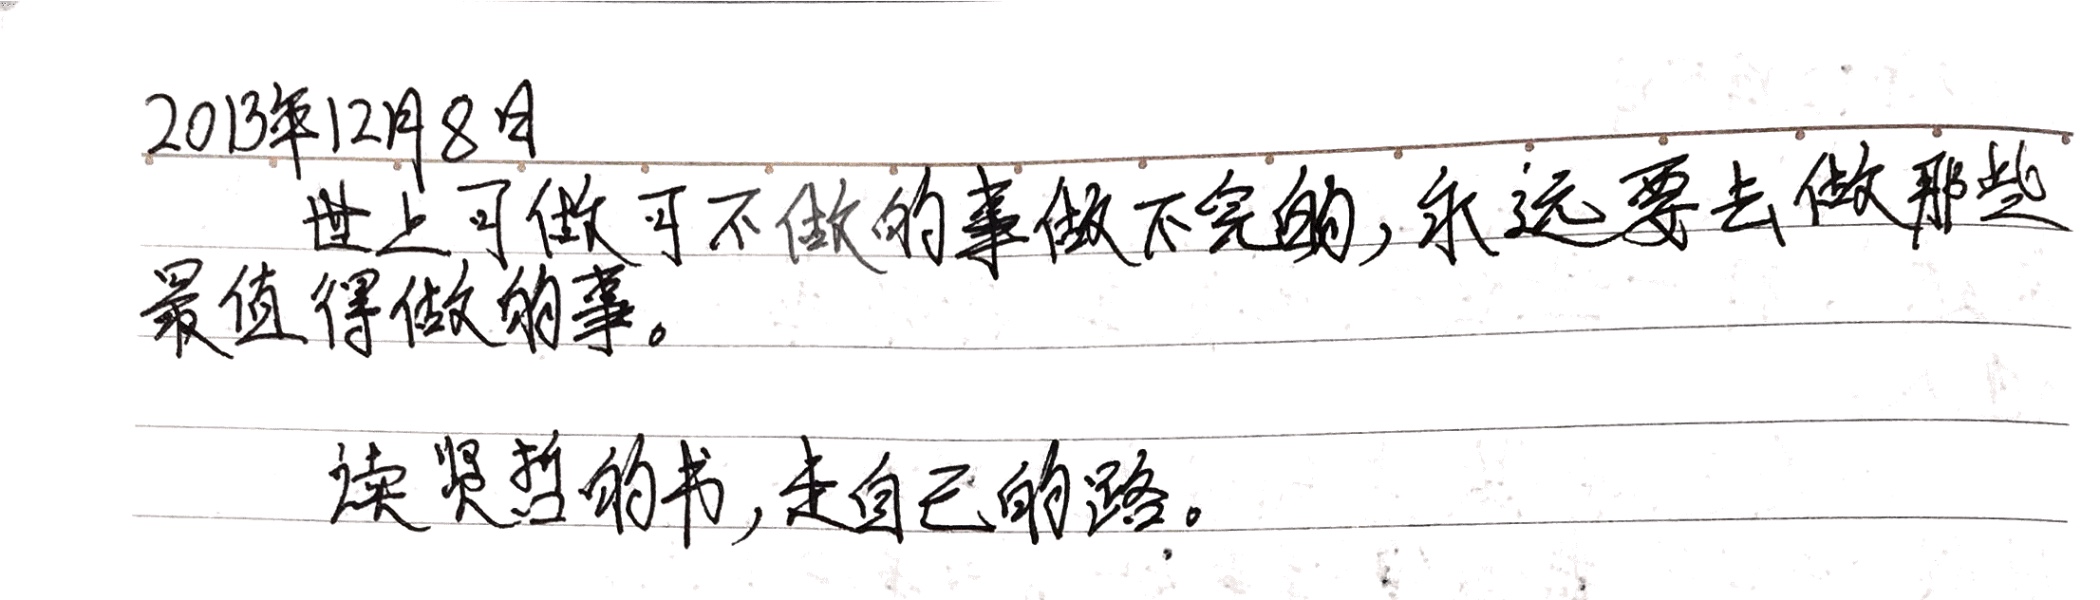 2013年12月8日
世上可做可不做的事做不完的,永远要去做那些
最值得做的事。
读贤哲的书,走自己的路。